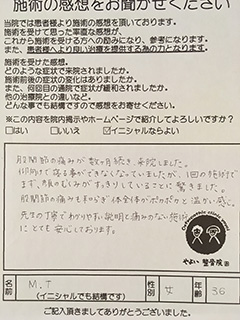 施術の感想をお聞かせください
当院では患者様より施術の感想を頂いております。
施術を受けて思った率直な感想が、
これから施術を受ける方への励みになり、参考になります。
また、患者様へより良い治療を提供する為の力となります。
施術を受けた感想。
どのような症状で来院されましたか。
施術前後の症状の変化はありましたか。
また、何回目の通院で症状が緩和されましたか。
他の治療院との違いなど。
どんな事でも結構ですので感想をお寄せください。
※この内容を院内掲示やホームページで紹介してよろしいですか？
□はい □いいえ ☑イニシャルならよい
股関節の痛みが数ヶ月続き、来院しました。
仰向けで寝る事ができなくなっていましたが、1回の施術で
まず、顔のむくみがすっきりしていることに驚きました。
股関節の痛みも和らぎ体全体がポカポカと温かい感じ。
先生の丁寧でわかりやすい説明と痛みのない施術に
とても安心しております。
やよい 整骨院
名前 M.T (イニシャルでも結構です) 性別 女 年齢 36
ご記入頂きましてありがとうございました。